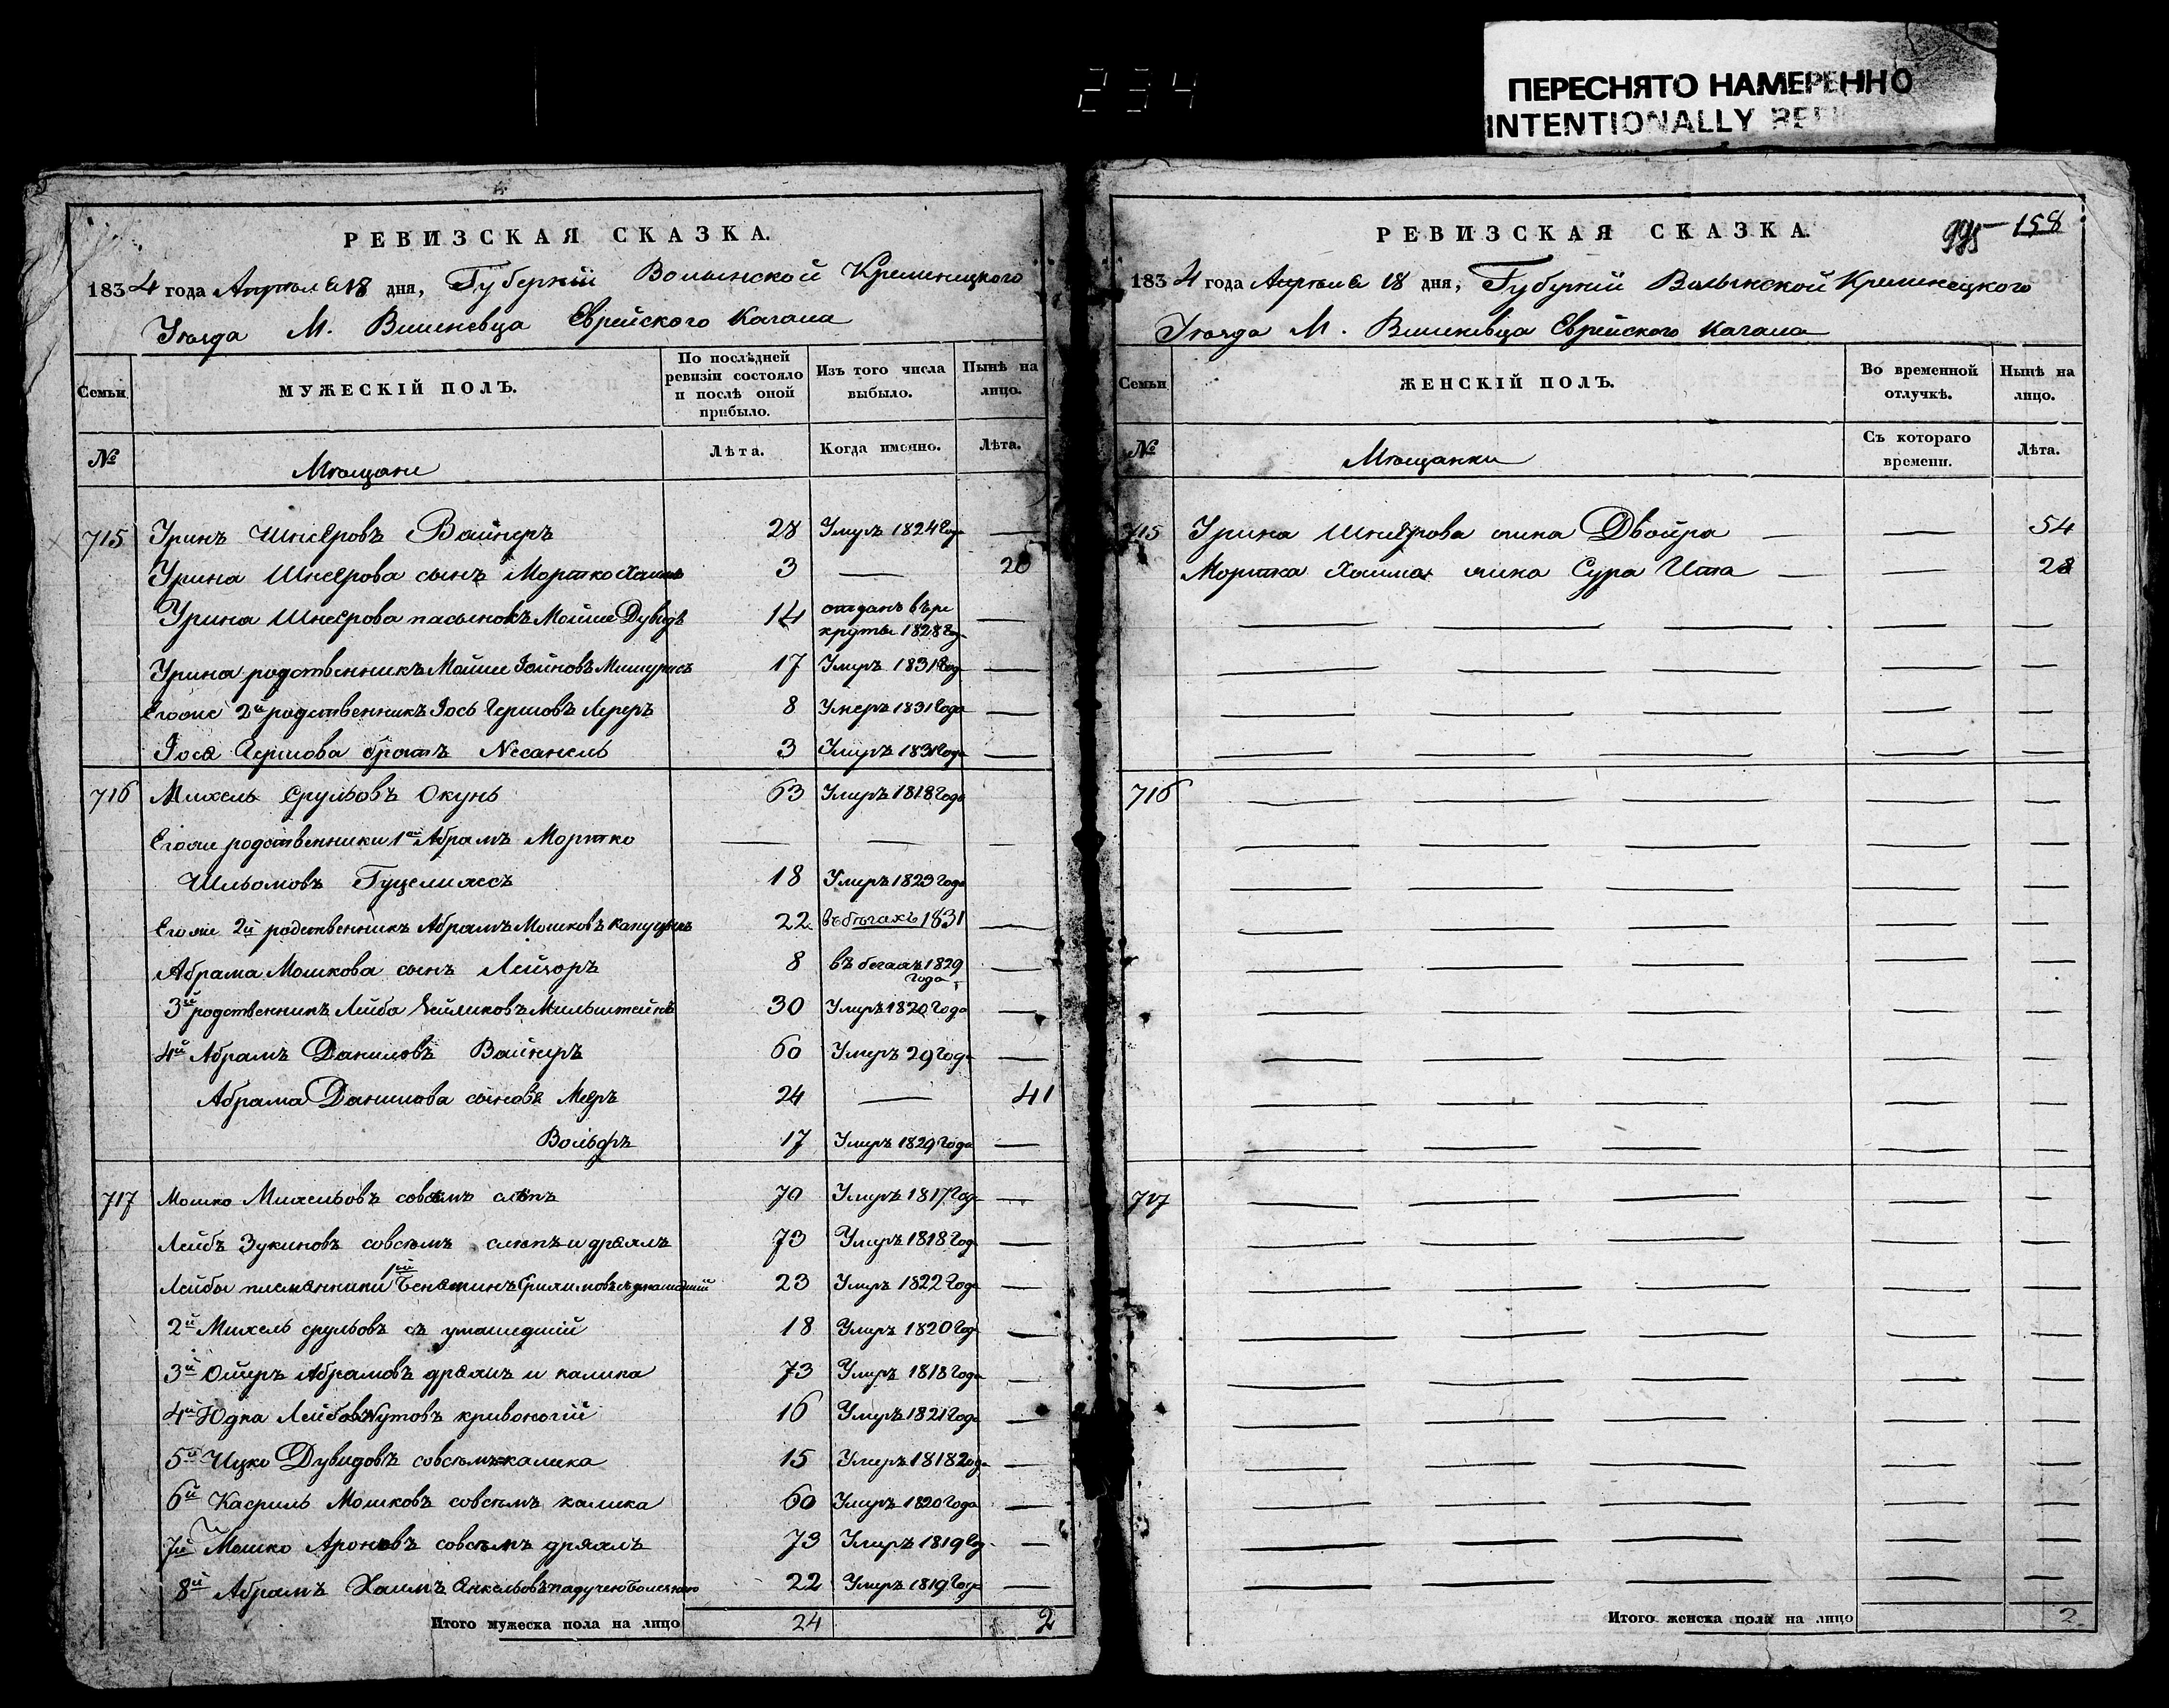 234
ПЕРЕСНЯТО НАМЕРЕННО
INTENTIONALLY
РЕВИЗСКАЯ СКАЗКА.
1834 года Апреля 18 дня, Губернiи Волынской Кременецкого
Уѣзда М. Вишневца Еврейского Кагала
Семьи
МУЖЕСКIЙ ПОЛЪ.
По послѣдней ревизiи состояло и послѣ оной прибыло.
Изъ того числа выбыло.
Нынѣ на лицо.
№
Мѣщане
Лѣта.
Когда именно.
Лѣта.
715 Уринъ Шнеѐровъ Вайнеръ 28 Умеръ 1824 Года —
Урина Шнеерова сынъ Мортко Хаимъ 3 — 20
Урина Шнеерова пасынокъ Мойше Дувидъ 14 отданъ въ ре
круты 1828 го —
Урина родственникъ Мойше Iойновъ 17 Умеръ 1831 Год —
Егоже 2й родственникъ Iось Гершовъ Лереръ 8 Умеръ 1831 Года —
Iося Гершова братъ Несанель 3 Умеръ 1831 Года —
716 Михель Срульовъ Окунь 63 Умеръ 1818 Года
Егоже родственники 1ый Абрамъ Мортко — — —
Шльомовъ 18 Умеръ 1823 Года
Егоже 2й родственникъ Абрамъ Мошковъ 22 въ бѣгахъ 1831 —
Абрама Мошкова сынъ Лейзоръ 8 въ бегахъ 1829 —
года
3й родственникъ Лейба Зейликовъ Мильштейнъ 30 Умеръ 1820 Года —
4й Абрамъ Даниловъ Вайнеръ 60 Умеръ 29 Года —
Абрама Данилова сыновя Меѐръ 24 — 41
Вольфъ 17 Умеръ 1829 Года —
717 Мошко Михельовъ совсѣмъ слѣпъ 70 Умеръ 1817 Год —
Лейбъ Зукиновъ совсѣмъ слѣпъ и дряхлъ 73 Умеръ 1818 Год —
Лейбы племянники 1ый Бенѧминъ 23 Умеръ 1822 Года —
2й Михель срульовъ съ умашедшiй 18 Умеръ 1820 Год —
3й Ойзеръ Абрамовъ дряхлъ и калика 73 Умеръ 1818 Года —
4й Юдка Лейбовъ кривоногiй 16 Умеръ 1821 Года —
5й Ицко Дувидовъ совсѣмъ калека 15 Умеръ 1818 Года —
6й Касриль Мошковъ совсѣмъ калика 60 Умеръ 1820 Года —
7й Мошко Ароновъ совсѣмъ дряхлъ 73 Умеръ 1819 Го —
8й Абрамъ Хаимъ Янкельовъ 22 Умеръ 1819 Года —
Итого мужеска пола на лицо 24 2
РЕВИЗСКАЯ СКАЗКА.
995 158
1834 года Апреля 18 дня, Губернiй Волынской Кременецкого
Уѣзда М. Вишневца Еврейского Кагала
Семьи
ЖЕНСКIЙ ПОЛЪ.
Во временной отлучкѣ.
Нынѣ на лицо.
№
Мѣщанки
Съ котораго времени.
Лѣта.
715 Урина Шнеерова жина Двойра — — 54
Мортка Хаима жина Сура Ита — — 28
716
717
Итого женска пола на лицо 2